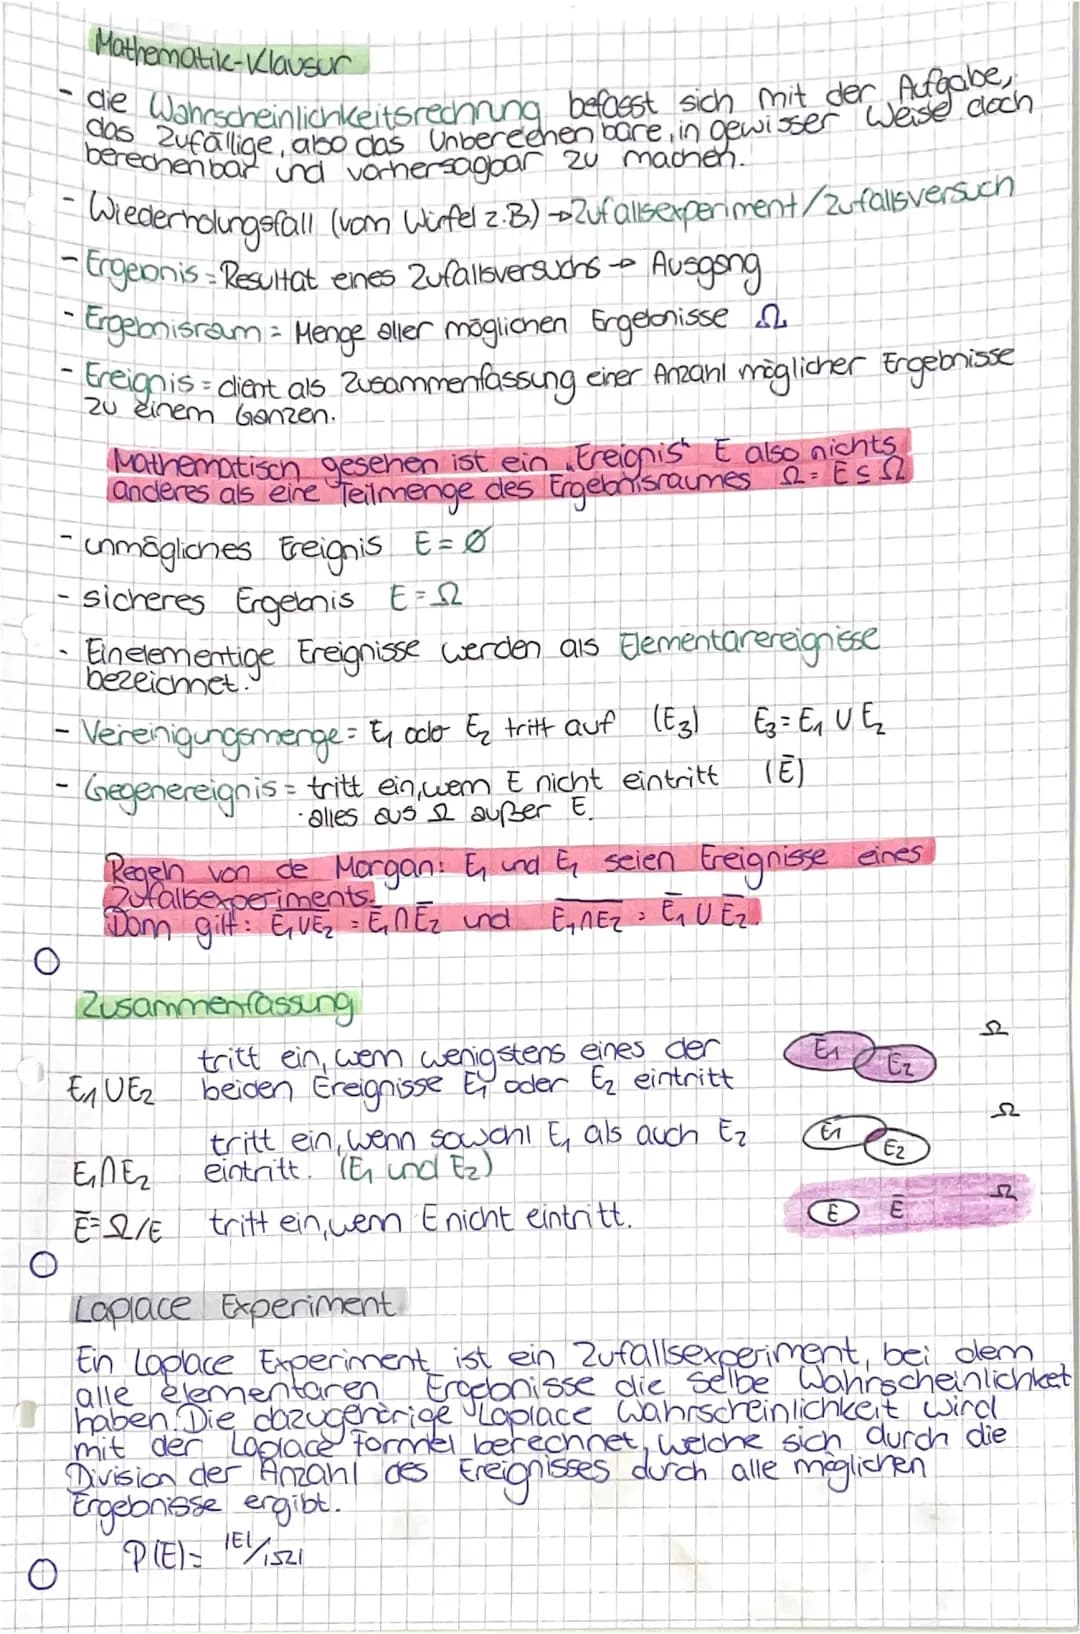 Mathematik-Klausur
- die Wahrscheinlichkeitsrechnung befasst sich mit der Aufgabe,
das Zufällige, also das Unberechenbare, in gewisser Weise doch
berechenbar und vorhersagbar zu machen.
- Wiederholungsfall (vom Würfel z.B) → Zufallsexperiment/Zufallsversuch
- Ergebnis = Resultat eines Zufallsversuchs → Ausgang
- Ergebnisraum = Menge aller möglichen Ergebnisse Ω
- Ereignis = dient als Zusammenfassung einer Anzahl möglicher Ergebnisse
zu einem Ganzen.
Mathematisch gesehen ist ein „Ereignis" E also nichts
anderes als eine Teilmenge des Ergebnisraumes Ω = E ⊆ Ω
- unmögliches Ereignis E = Ø
- sicheres Ergebnis E = Ω
- Einelementige Ereignisse werden als Elementarereignisse
bezeichnet.
- Vereinigungsmenge = E₁ oder E₂ tritt auf (E₃) E₃ = E₁ ∪ E₂
- Gegenereignis = tritt ein, wenn E nicht eintritt (Ē)
· alles aus Ω außer E.
Regeln von de Morgan: E₁ und E₁ seien Ereignisse eines
Zufallsexperiments.
Dann gilt: \overline{E₁∪E₂} = Ē₁ ∩ Ē₂ und \overline{E₁∩E₂} = Ē₁ ∪ Ē₂.
Zusammenfassung
tritt ein, wenn wenigstens eines der
E₁ ∪ E₂ beiden Ereignisse E₁ oder E₂ eintritt
E₁ E₂ Ω
tritt ein, wenn sowohl E₁ als auch E₂
E₁ ∩ E₂ eintritt. (E₁ und E₂)
E₁ E₂ Ω
Ē = Ω/E tritt ein, wenn E nicht eintritt.
E Ē Ω
Laplace Experiment
Ein Laplace Experiment ist ein Zufallsexperiment, bei dem
alle elementaren Ergebnisse die selbe Wahrscheinlichkeit
haben. Die dazugehörige Laplace Wahrscheinlichkeit wird
mit der Laplace Formel berechnet, welche sich durch die
Division der Anzahl des Ereignisses durch alle möglichen
Ergebnisse ergibt.
P(E) = |E|/|Ω|